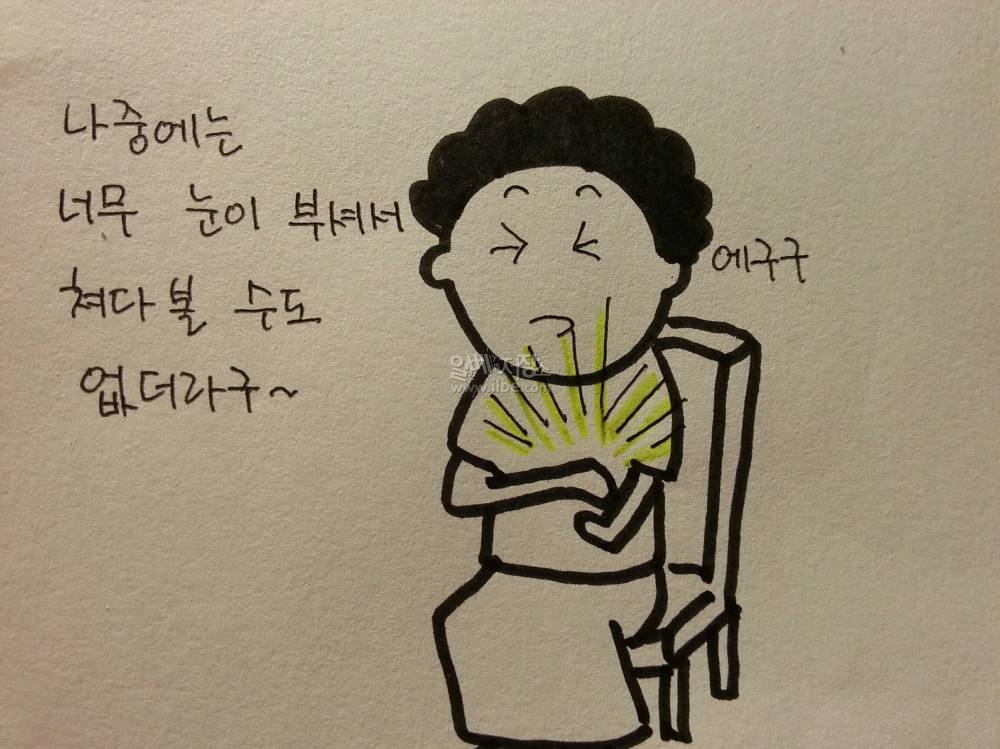 나중에는
너무 눈이 부셔서
쳐다볼 수도
없더라구~
에구구
일베저장소
www.ilbe.com